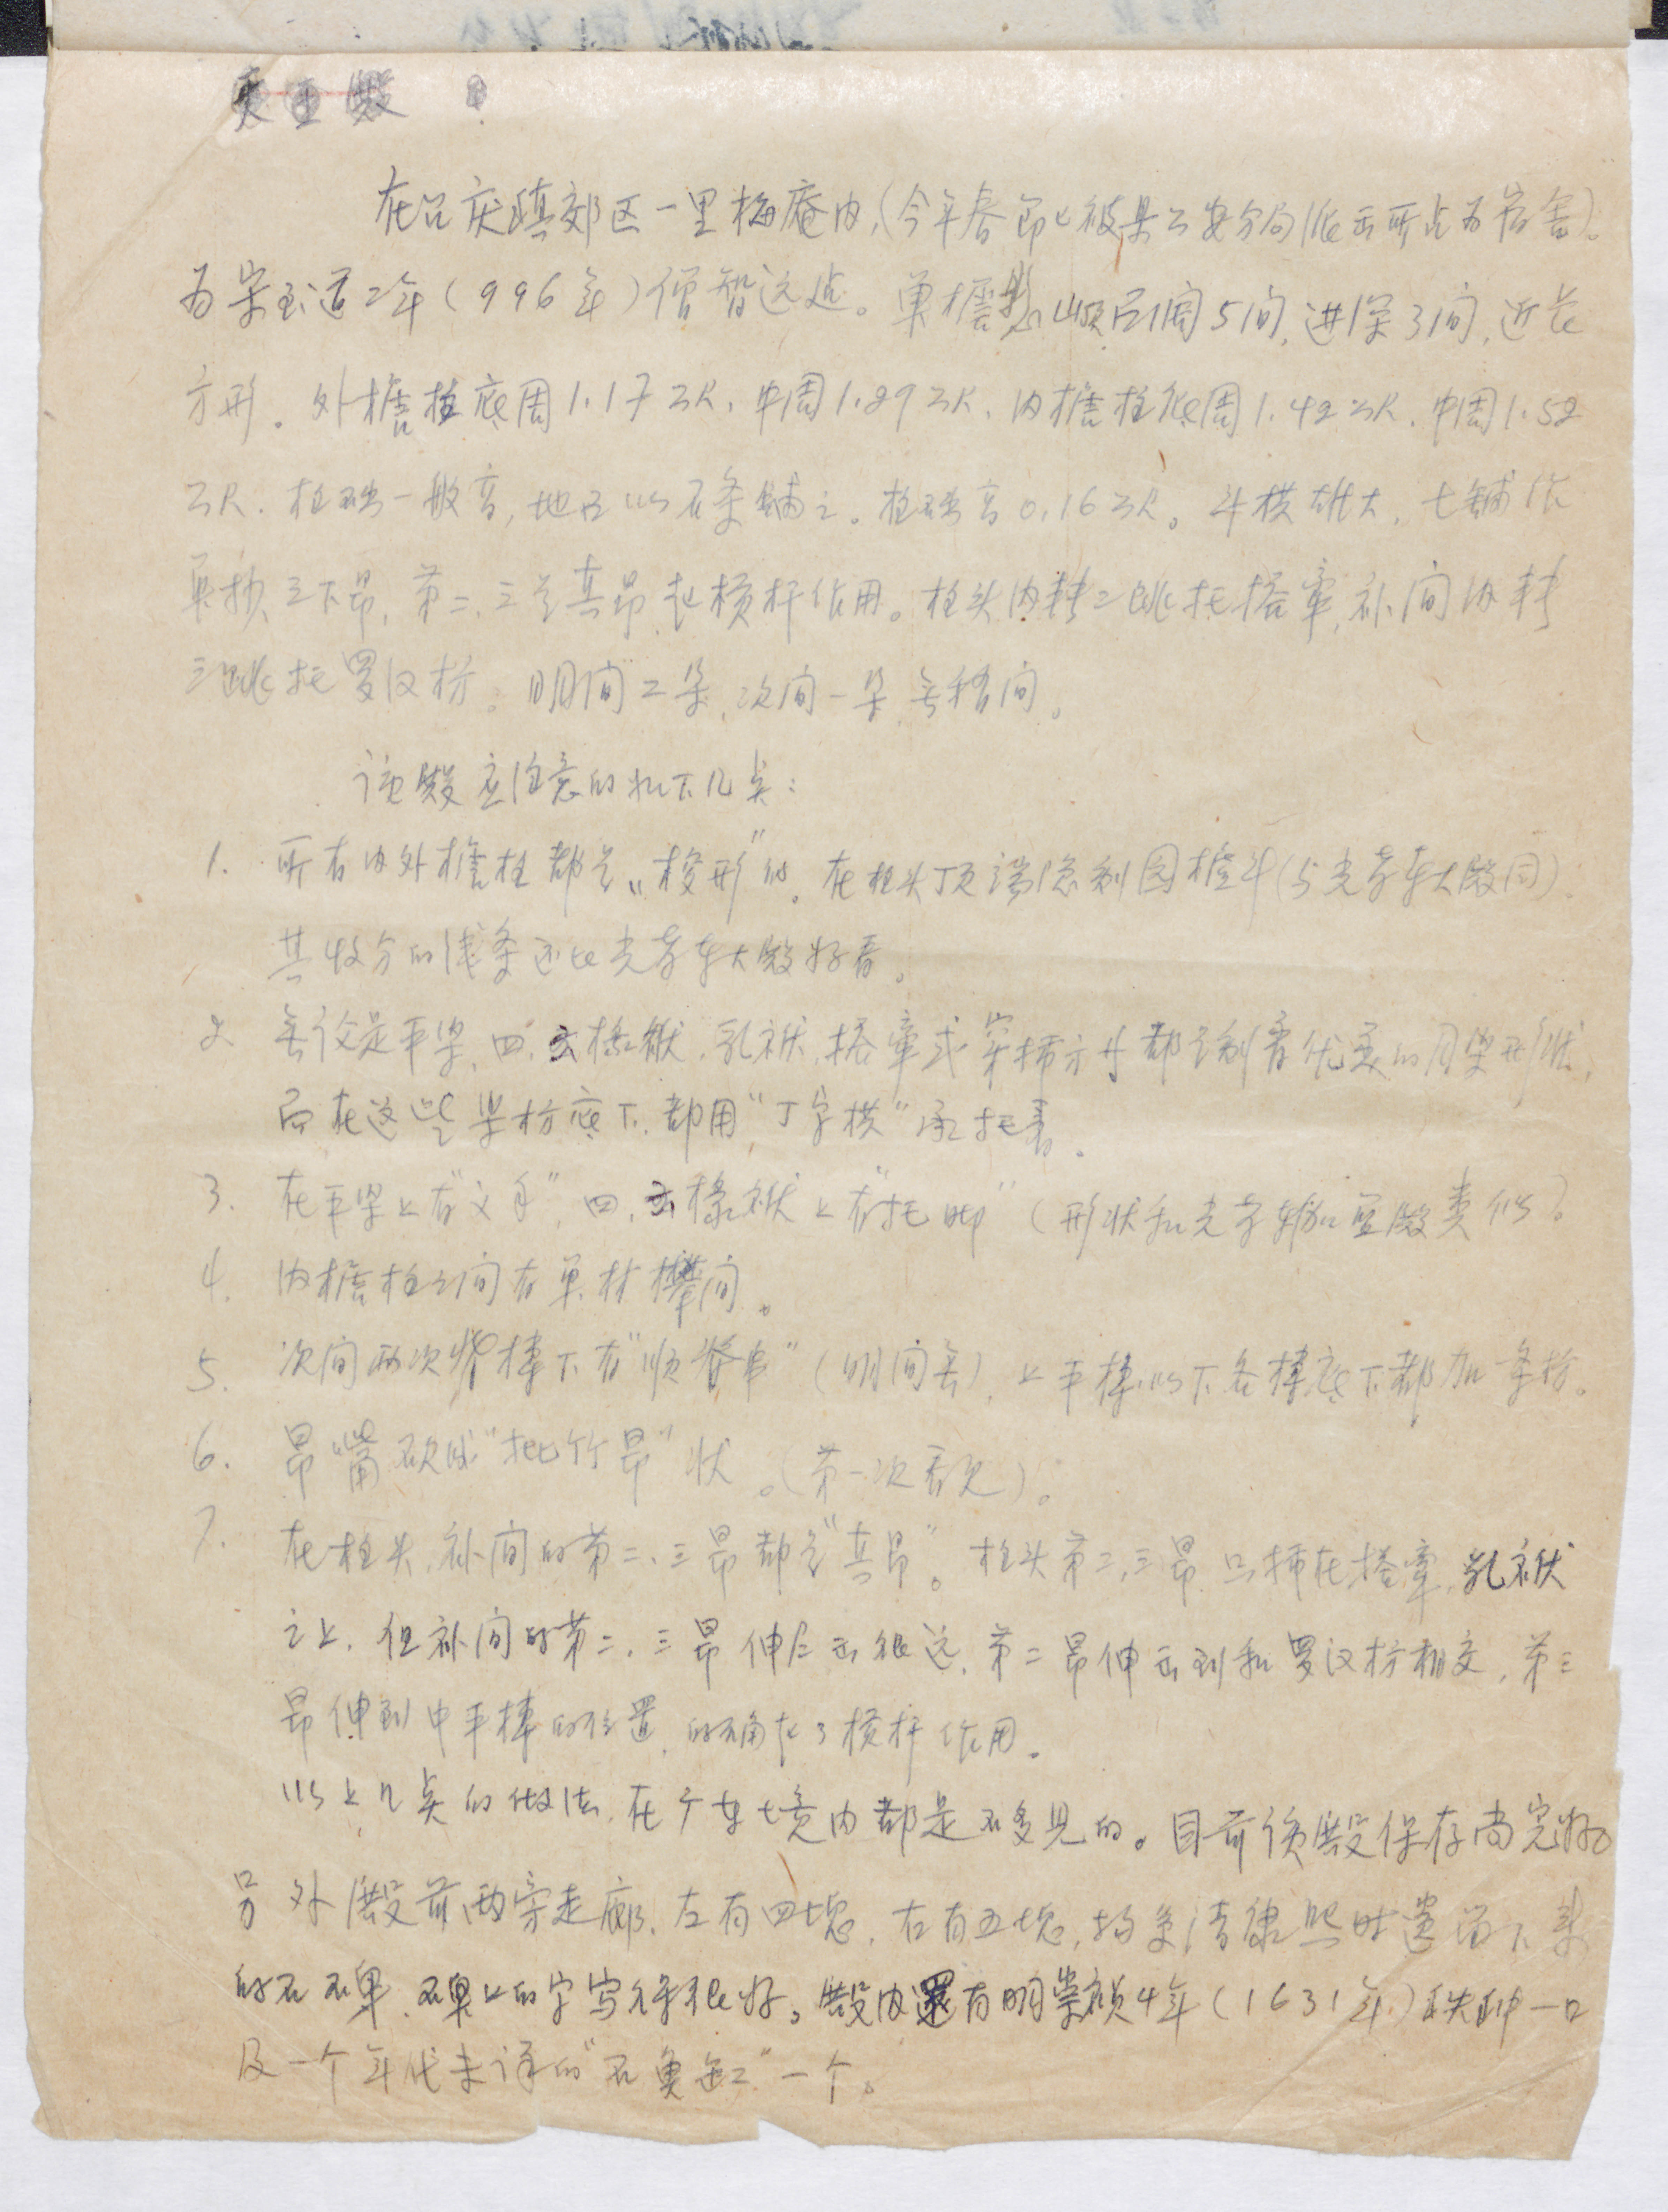 在召庆镇郊区一里梅庵内,(今年春节已被某公安分局派出所占为宿舍)。
为宋至道二年(996年)僧智远造。单檐山顶面阔5间,进深3间,近长
方形。外檐柱底周1.17公尺,中周1.29公尺,内檐柱底周1.42公尺,中周1.52
公尺.柱础一般高,地面以石条铺之。柱础高0.16公尺。斗栱雄大,七铺作
单抄三下昂,第二、三是真昂,起横杆作用。柱头内转二跳托搭牵,补间内转
三跳托罗汉枋。明间二朵,次间一朵,无梢间。
该殿应注意的如下几点:
1. 所有内外檐柱都是“梭形”的。在柱头顶端隐刻园栌斗(与光孝寺大殿同).
其收分的线条还比光孝寺大殿好看。
2. 无论是平梁,四、六椽栿,乳栿,搭牵或穿插方等都是刻着优美的月梁形状,
而在这些梁枋底下,都用“丁字栱”承托着。
3. 在平梁上有“义手”,四、六椽栿上有“托脚”(形状和光孝寺伽蓝殿类似)。
4. 内檐柱之间有单材襻间。
5. 次间两次脊槫下有“顺脊串”(明间无),上平槫以下各槫底下都加条枋。
6. 昂嘴砍成“批竹昂”状。(第一次看见)。
7. 在柱头,补间的第二、三昂都是“真昂”。柱头第二,三昂只插在搭牵,乳栿
之上,但补间的第二、三昂伸后出很远,第二昂伸出到和罗汉枋相交,第三
昂伸到中平槫的位置,的确起了横杆作用。
以上几点的做法,在广东境内都是不多见的。目前该殿保存尚完好
另外殿前两旁走廊,左有四块,右有五块,均是清康熙时遗留下来
的石碑,碑上的字写得很好。殿内还有明崇祯4年(1631年)铁钟一口
及一个年代未详的“石鱼缸”一个。